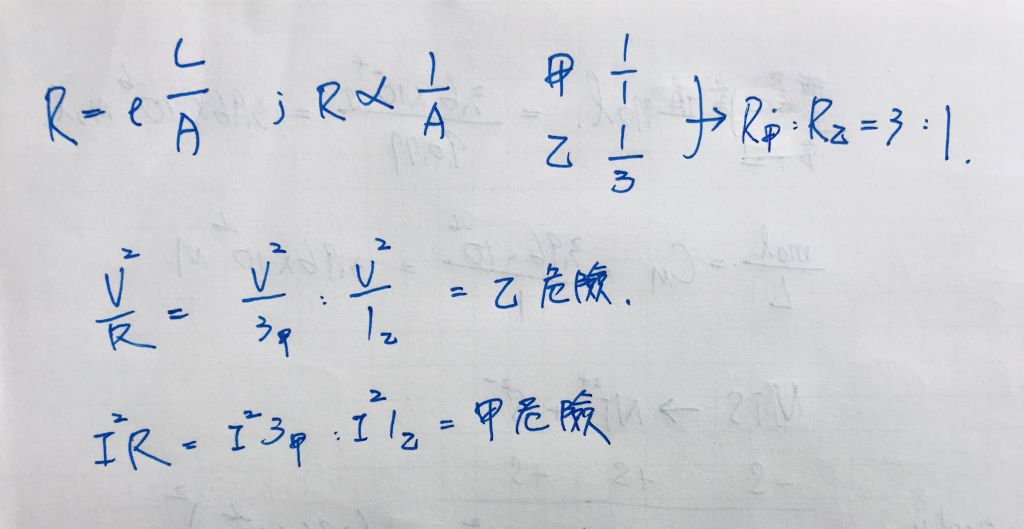 R = e L/A ; R ∝ 1/A 甲 1/1 乙 1/3 → R甲 : R乙 = 3 : 1.
V²/R = V²/3甲 : V²/1乙 = 乙危險.
I²R = I²3甲 : I²1乙 = 甲危險